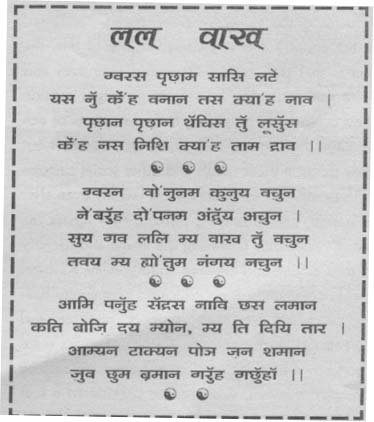 ल्ल वाख
ग्वरस पृछा़म सासि लटे
यस नुँ केँ'ह वनान तस क्या'ह नाव ।
पृछा़न पृछा़न थँचिस तुँ लूसुँस
केँ'ह नस निशि क्या'ह ताम द्राव ।।
ग्वरन वो'नुनम कुनुय वचुन
ने'बरुँह दो'पनम अंद्रुँय अचुन ।
सुय गव ललि म्य वाख तुँ वचुन
तवय म्य ह्यो'तुम नंगय नच़ुन ।।
आमि पनुँह सँद्रस नावि छस लमान
कति बोज़ि दय म्योन, म्य ति दियि तार ।
आम्यन टाक्यन पोञ ज़न शमान
जुव छुम ब्रमान गरुँह गछुँहाँ ।।